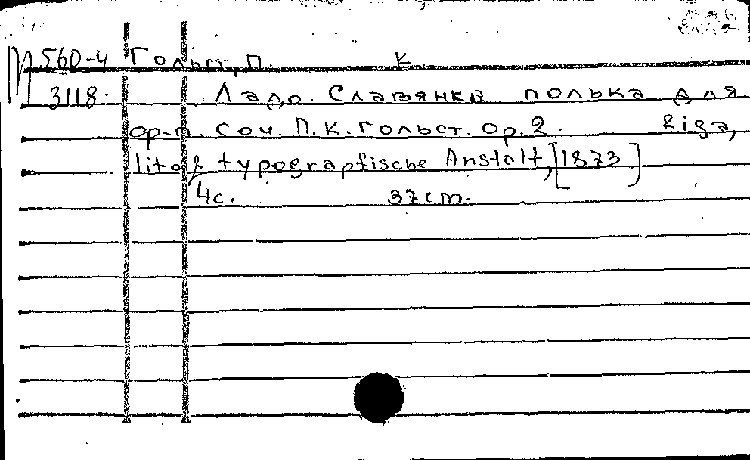 М 560-4 Гольст, П. К.
3118. Ладо. Славянка полька для
ор-п. соч. П.К. Гольст. Op. 2. Riga,
lito & typographische Anstalt, [1873]
4с. 37cm.